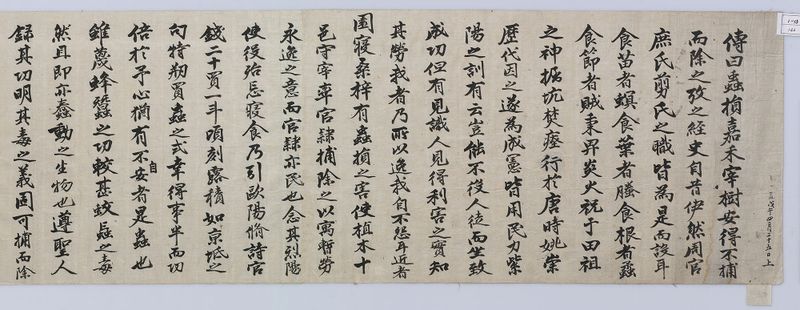 戊午四月二十五日上
傳曰蟲損嘉禾宰樹安得不捕
而除之攷之經史自昔伊然周官
庶氏剪氏之職皆為是而設耳
食苗者螟食葉者螣食根者蟊
食節者賊秉畀炎火祝于田祖
之神掘坑焚瘞行於唐時姚崇
歷代因之遂為成憲皆用民力紫
陽之訓有云豈能不役人徒而坐致
成功但有見識人見得利害之實知
其勞我者乃所以逸我自不怨耳近者
園寢桑梓有蟲損之害使植木十
邑守宰率官隷捕除之以寓暫勞
永逸之意而官隷亦民也念其烈陽
使役殆忘寢食乃引歐陽脩詩官
錢二十買一斗頃刻露積如京坻之
句特刱買蟲之式幸得事半而功
倍於予心猶有不自安者是蟲也
雖蔑蜂蠶之功較甚蚊蝱之毒
然且即亦蠢動之生物也遵聖人
錄其功明其毒之義固可捕而除